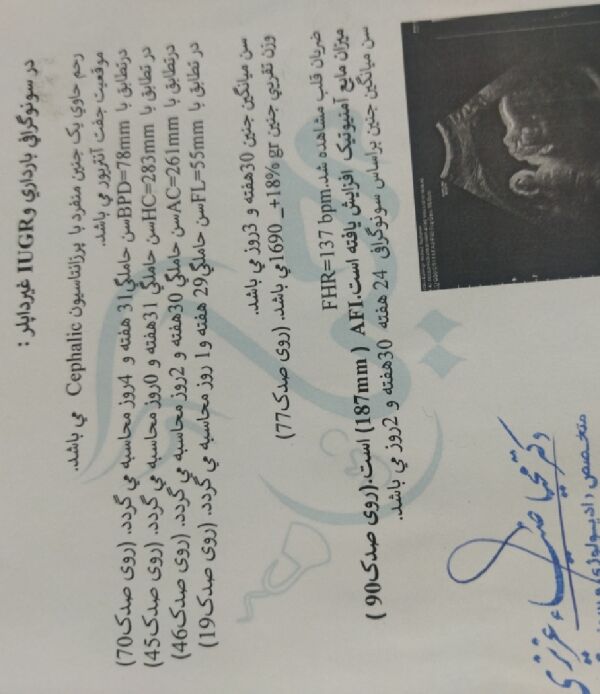 در سونوگرافي بارداري وIUGR غیرداپلر :
رحم حاوي يک جنين منفرد با پرزانتاسيون Cephalic مي باشد.
موقعيت جفت آنتريور مي باشد.
درتطابق با BPD=78mmسن حاملگي31 هفته و 4روز محاسبه مي گردد. (روی صدک70)
در تطابق با HC=283mmسن حاملگي 31هفته و 0روز محاسبه مي گردد. (روی صدک45)
درتطابق با AC=261mmسن حاملگي 30هفته و 2روز محاسبه مي گردد. (روی صدک46)
در تطابق با FL=55mmسن حاملگي29 هفته و1 روز محاسبه مي گردد. (روی صدک19)
سن ميانگين جنين 30هفته و 3روز مي باشد.
وزن تقريبي جنين 1690 _+18% grمي باشد. (روی صدک77)
ضربان قلب مشاهده شد.FHR=137 bpm
میزان مایع آمنیوتیک افزایش یافته است.AFI ( 187mm) است.(روی صدک90 )
سن میانگین جنین براساس سونوگرافی 24 هفته 30هفته و 2روز می باشد.
متخصص رادیولوژی و